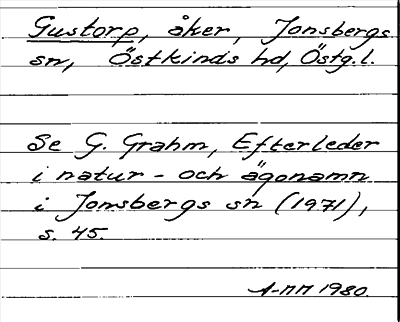 Gustorp, åker, Jonsbergs
sn, Östkinds hd, Östg.l.
Se G. Grahm, Efterleder
i natur- och ägonamn
i Jonsbergs sn (1971),
s. 45.
A-NN 1980.